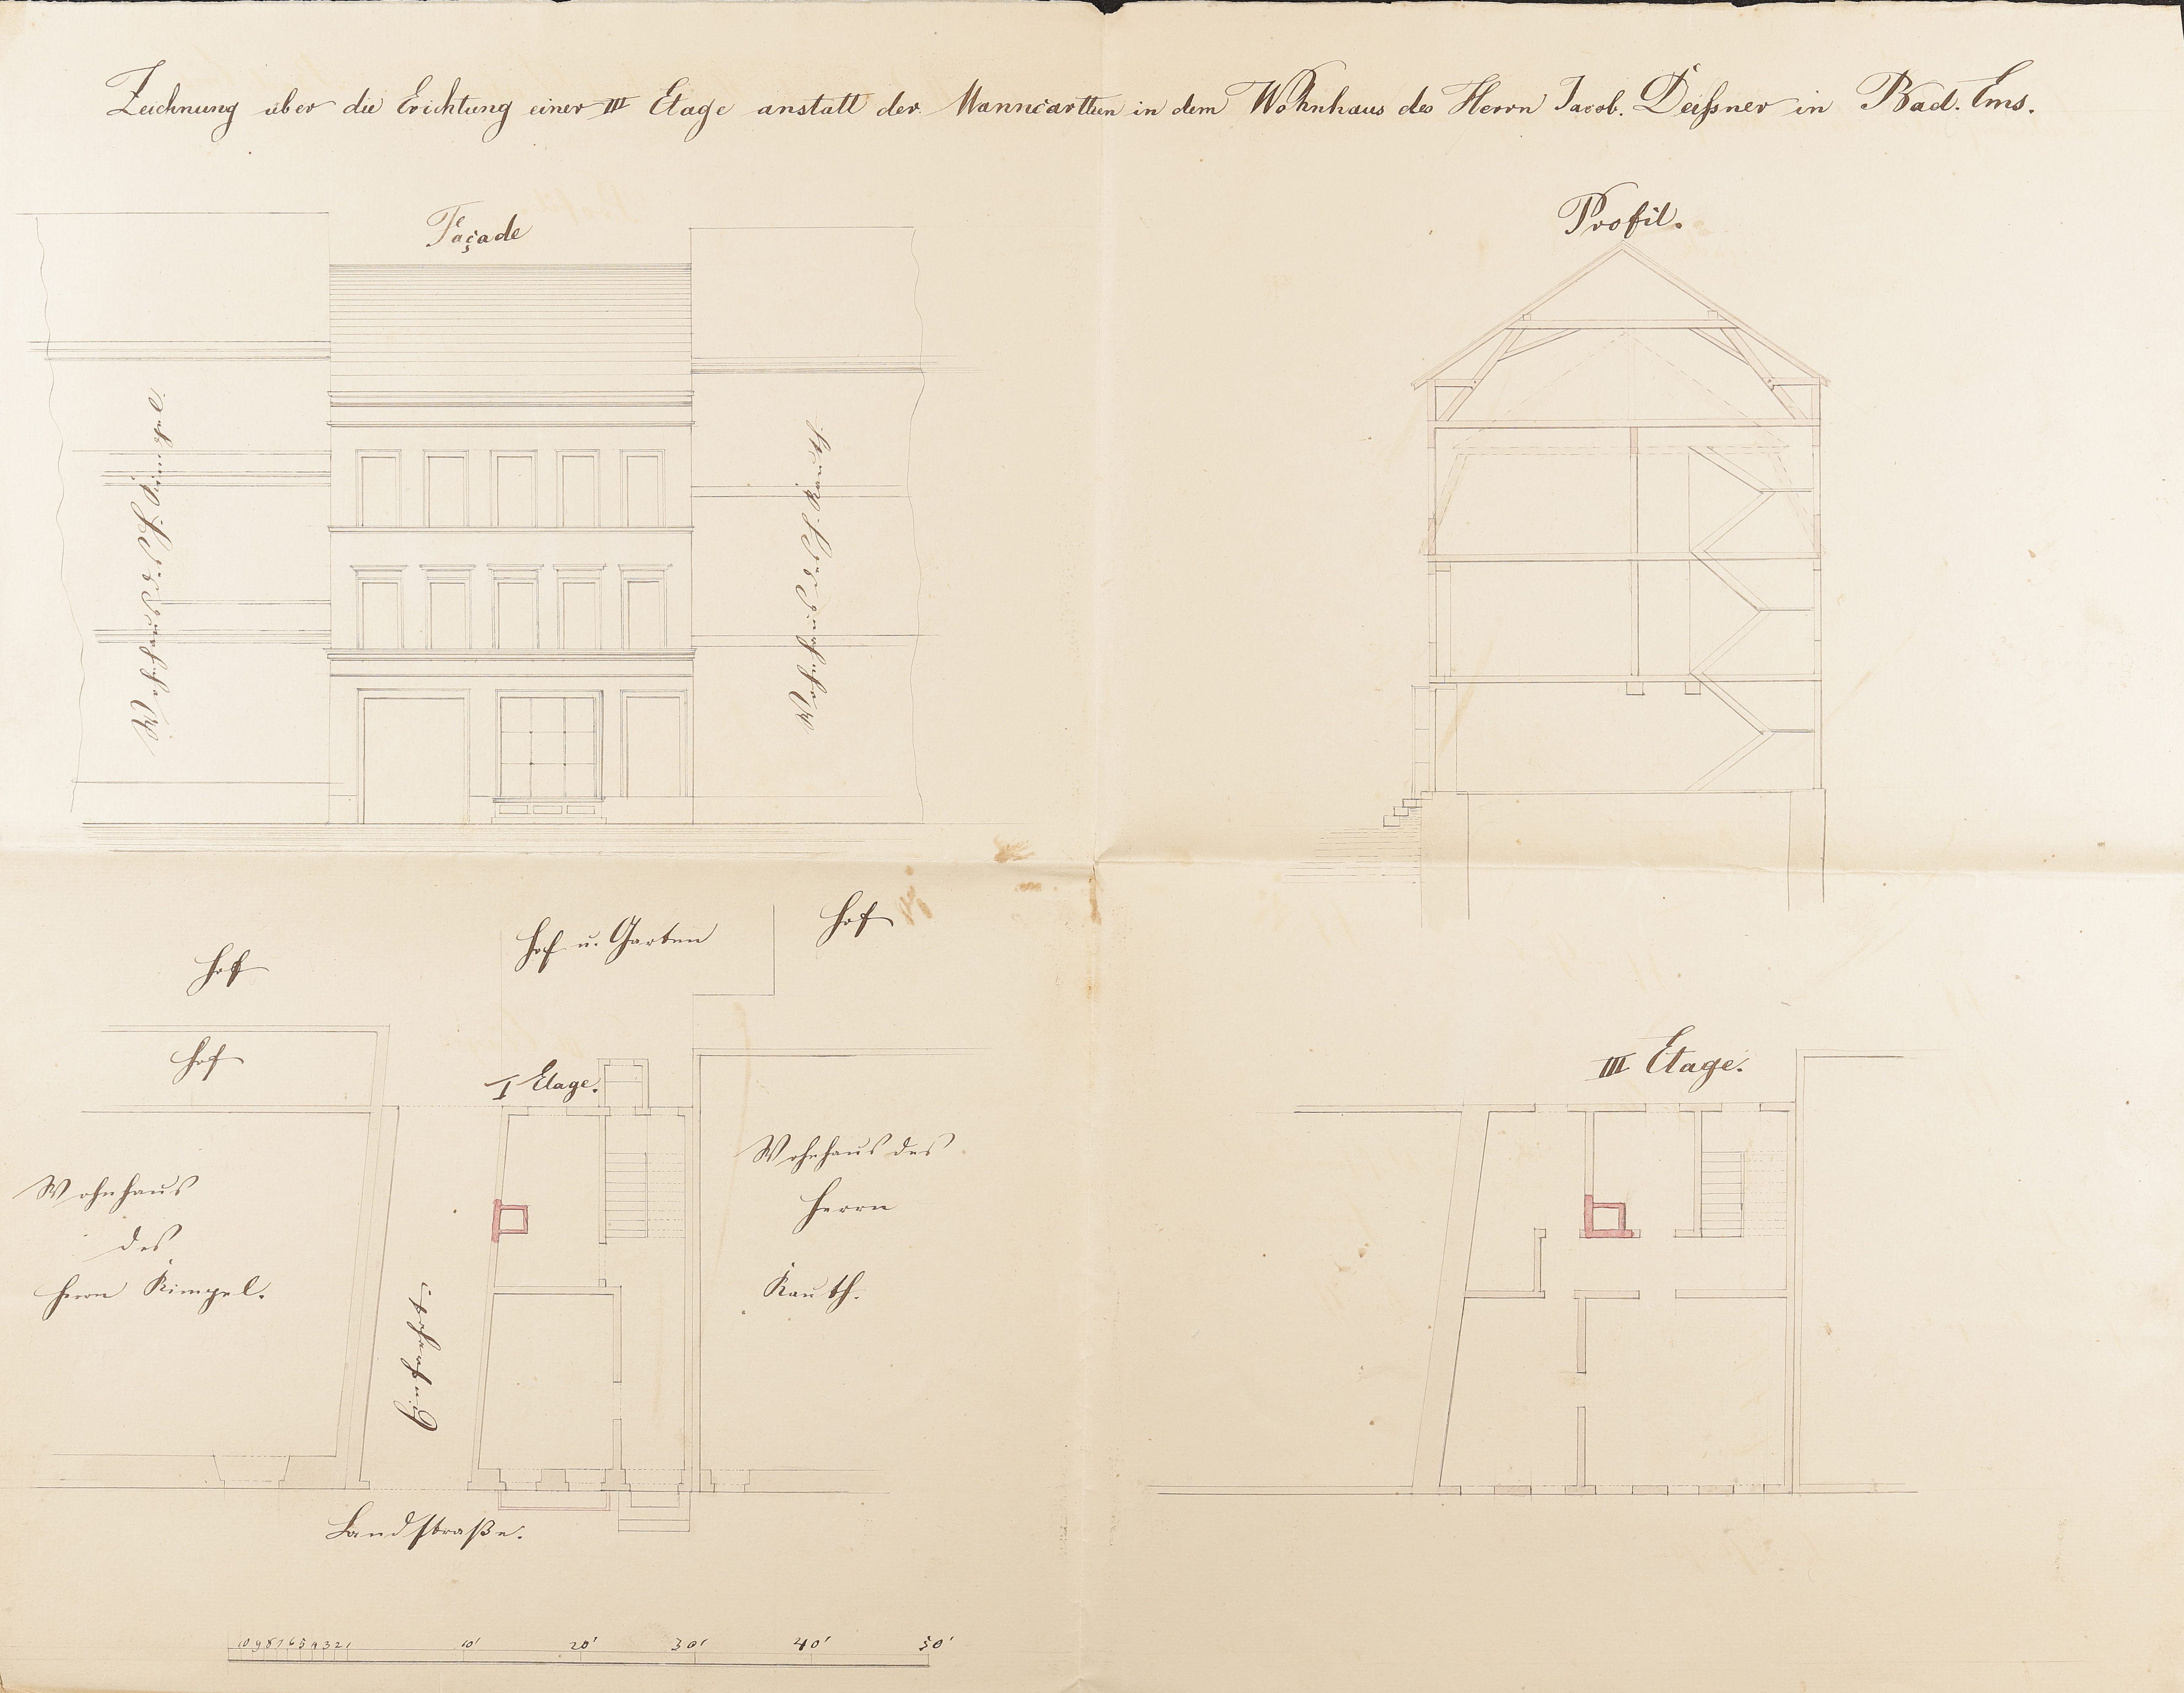 Zeichnung über die Erichtung einer III Etage anstatt der Manncartten in dem Wohnhaus des Herrn Jacob. Deißner in Bad. Ems.
Façade
Profil.
Wohnhaus d. H. Kimpel
Wohnhaus d. H. Kauth
Hof
Hof u. Garten
Hof
Hof
I Etage.
III Etage.
Wohnhaus
des
Herrn Kimpel.
Einfahrt.
Wohnhaus des
Herrn
Kauth.
Landstraße.
10 9 8 7 6 5 4 3 2 1 10' 20' 30' 40' 50'